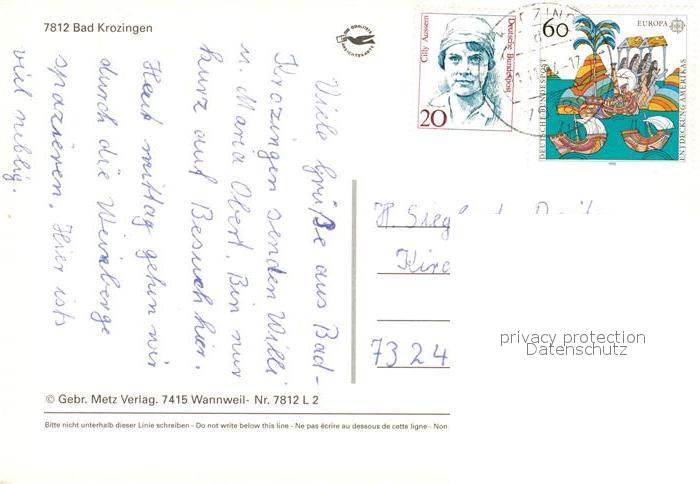 7812 Bad Krozingen
Viele Grüße aus Bad-
Krozingen senden Willi
u. Maria Obert. Bin nur
kurz auf Besuch hier.
Heut mittag gehen wir
durch die Weinberge
spazieren. Hier ists
viel neblig.
Cilly Aussem
Deutsche Bundespost
20
60
EUROPA
DEUTSCHE BUNDESPOST
ENTDECKUNG AMERIKAS
H. Sieg
Kirc
7324
privacy protection
Datenschutz
© Gebr. Metz Verlag. 7415 Wannweil- Nr. 7812 L 2
Bitte nicht unterhalb dieser Linie schreiben - Do not write below this line - Ne pas écrire au dessous de cette ligne - Non